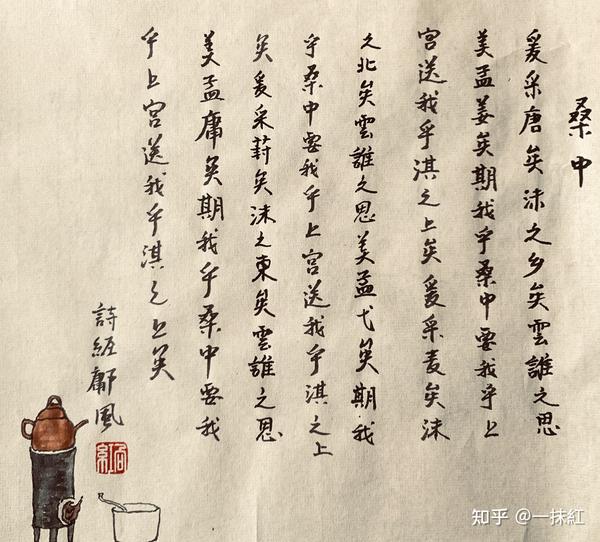 桑中
爰采唐矣沬之乡矣雲誰之思
美孟姜矣期我乎桑中要我乎上
宫送我乎淇之上矣爰采麦矣沬
之北矣雲誰之思美孟弋矣期我
乎桑中要我乎上宫送我乎淇之上
矣爰采葑矣沬之東矣雲誰之思
美孟庸矣期我乎桑中要我
乎上宫送我乎淇之上矣
詩經鄘風
知乎 @一抹紅